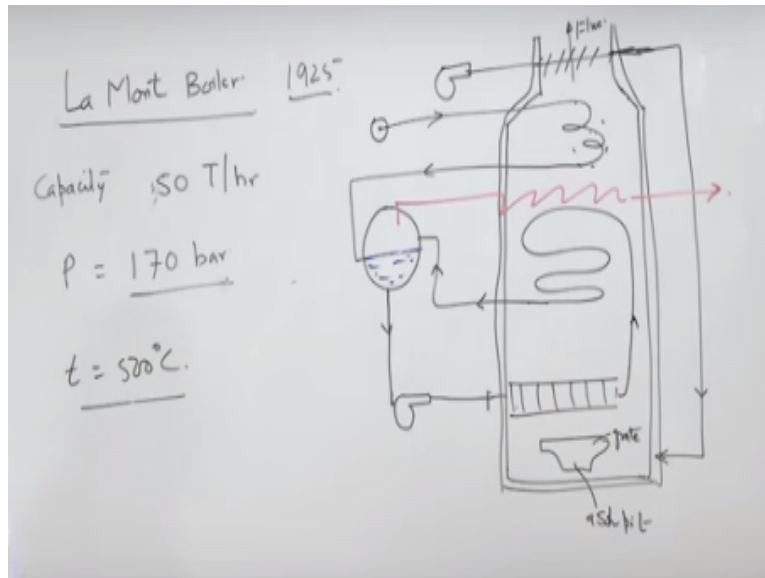 La Mont Boiler 1925
Capacity 50 T/hr
P = 170 bar
t = 500°C.
grate
ash pit